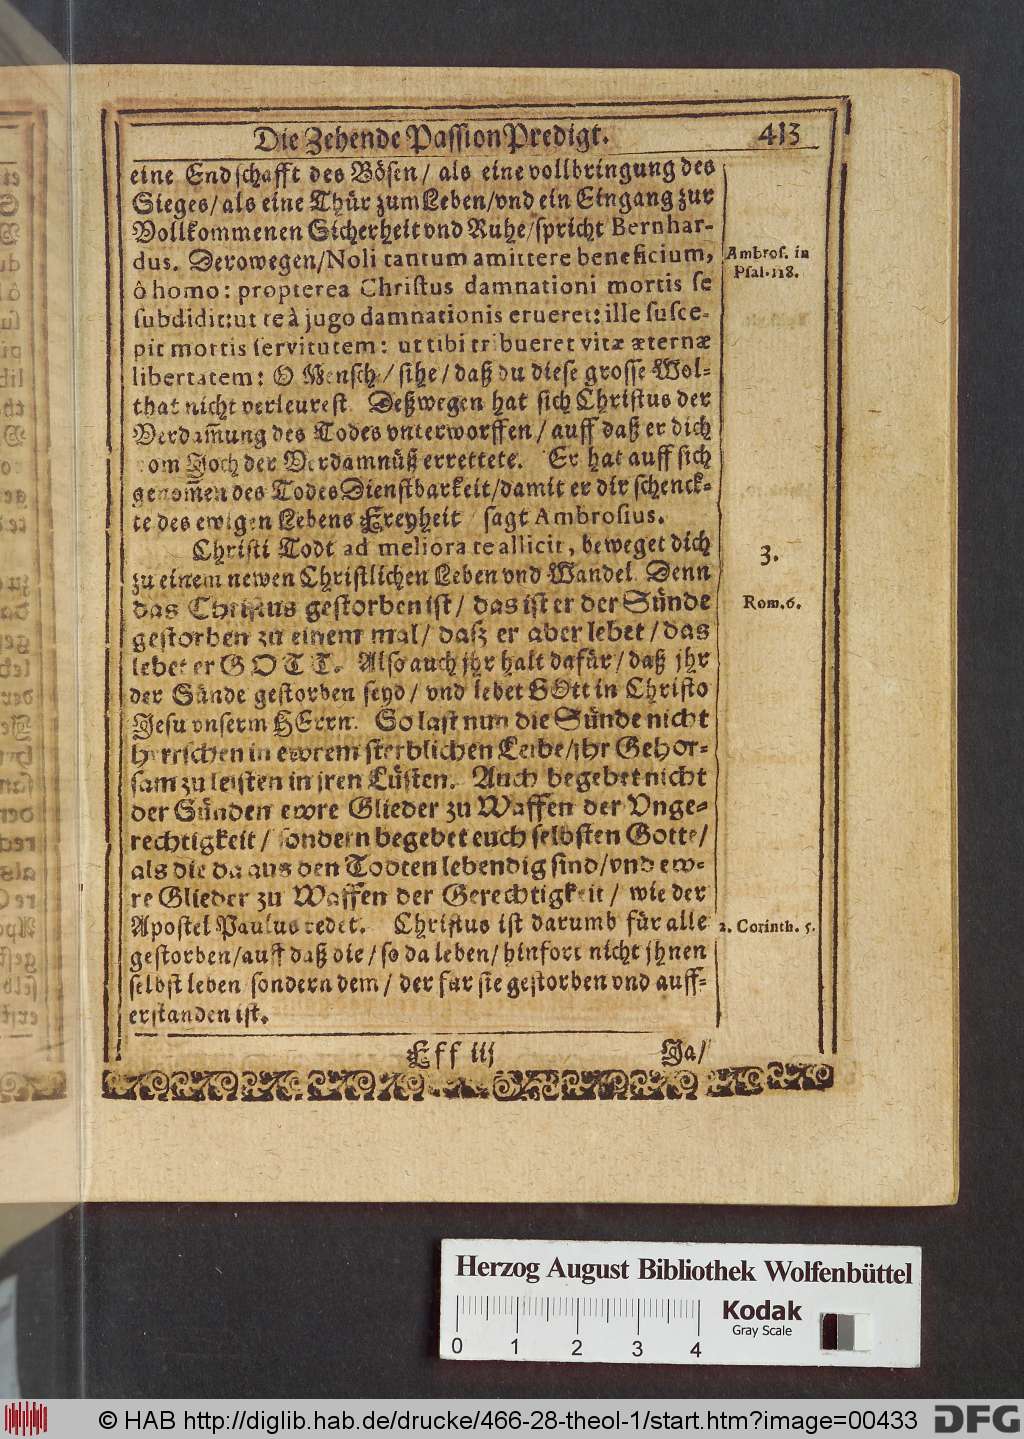 Die Zehende PassionPredigt. 413
eine Endschafft des Bösen/ als eine vollbringung des
Sieges/als eine Thür zum Leben/vnd ein Eingang zur
Vollkommenen Sicherheit vnd Ruhe/spricht Bernhar-
dus. Derowegen/Noli tantum amittere beneficium,
ô homo: propterea Christus damnationi mortis se
subdidit:ut te à jugo damnationis erueret: ille susce-
pit mortis servitutem: ut tibi tribueret vitæ æternæ
libertatem: O Mensch/ sihe/ daß du diese grosse Wol-
that nicht verleurest. Deßwegen hat sich Christus der
Verdam̅ung des Todes vnterworffen/ auff daß er dich
vom Joch der Verdamnüß errettete. Er hat auff sich
genom̅en des Todes Dienstbarkeit/damit er dir schenck-
te des ewigen Lebens Freyheit/ sagt Ambrosius.
Christi Todt ad meliora te allicit, beweget dich
zu einem newen Christlichen Leben vnd Wandel. Denn
das Christus gestorben ist/ das ist er der Sünde
gestorben zu einem mal/ dasz er aber lebet/ das
lebet er GOTT. Also auch jhr halt dafür/ daß jhr
der Sünde gestorben seyd/ vnd lebet GOtt in Christo
Jesu vnserm HErrn. So last nun die Sünde nicht
herrschen in ewrem sterblichen Leibe/jhr Gehor-
sam zu leisten in jren Lüsten. Auch begebet nicht
der Sünden ewre Glieder zu Waffen der Vnge-
rechtigkeit/ sondern begebet euch selbsten Gotte/
als die da aus den Todten lebendig sind/vnd ew-
re Glieder zu Waffen der Gerechtigkeit/ wie der
Apostel Paulus redet. Christus ist darumb für alle
gestorben/auff daß die/ so da leben/ hinfort nicht jhnen
selbst leben sondern dem/ der für sie gestorben vnd auff-
erstanden ist.
Fff iij Ja/
Ambros. in
Psal.118.
3.
Rom.6.
2. Corinth. 5.
Herzog August Bibliothek Wolfenbüttel
Kodak
Gray Scale
0 1 2 3 4
© HAB http://diglib.hab.de/drucke/466-28-theol-1/start.htm?image=00433
DFG